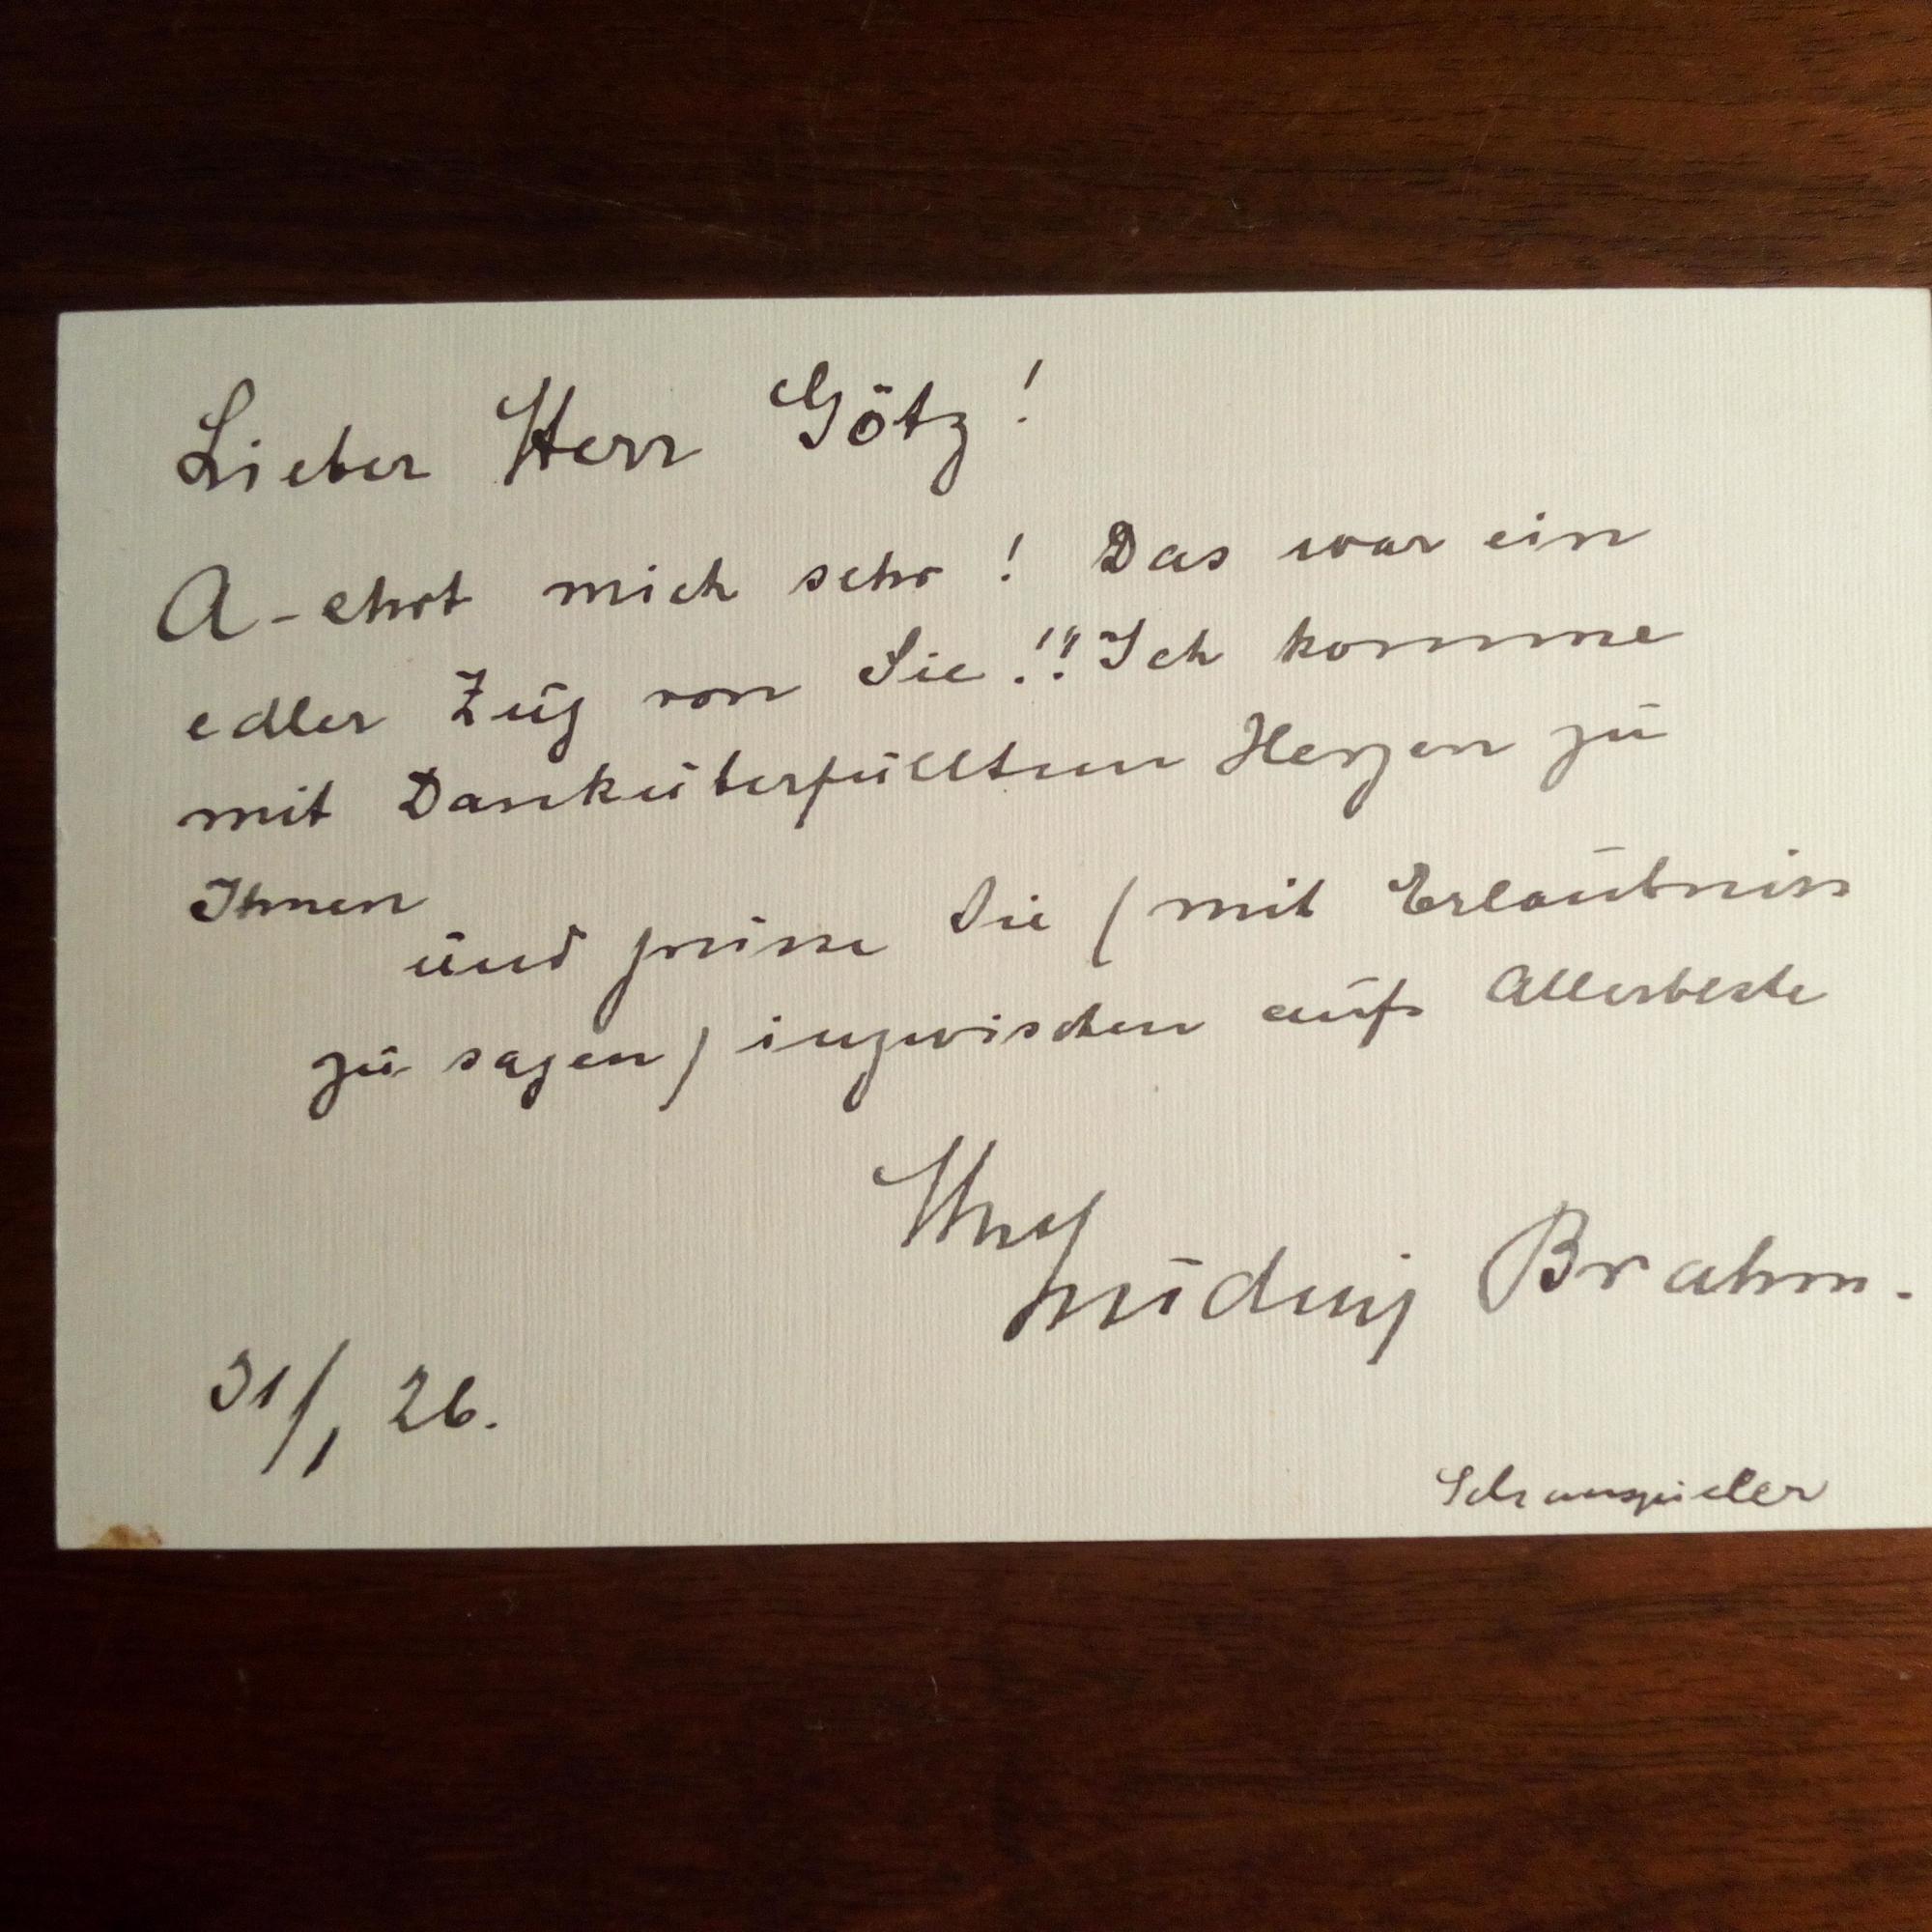 Lieber Herr Götz!
A-ehrt mich sehr! Das war ein
edler Zug von Sie!!! Ich komme
mit Danküberfülltem Herzen zu
Ihnen
und grüsse Sie (mit Erlaubniss
zu sagen) inzwischen aufs Allerbeste
Ihr
Ludwig Brahm.
31/1 26.
Schauspieler